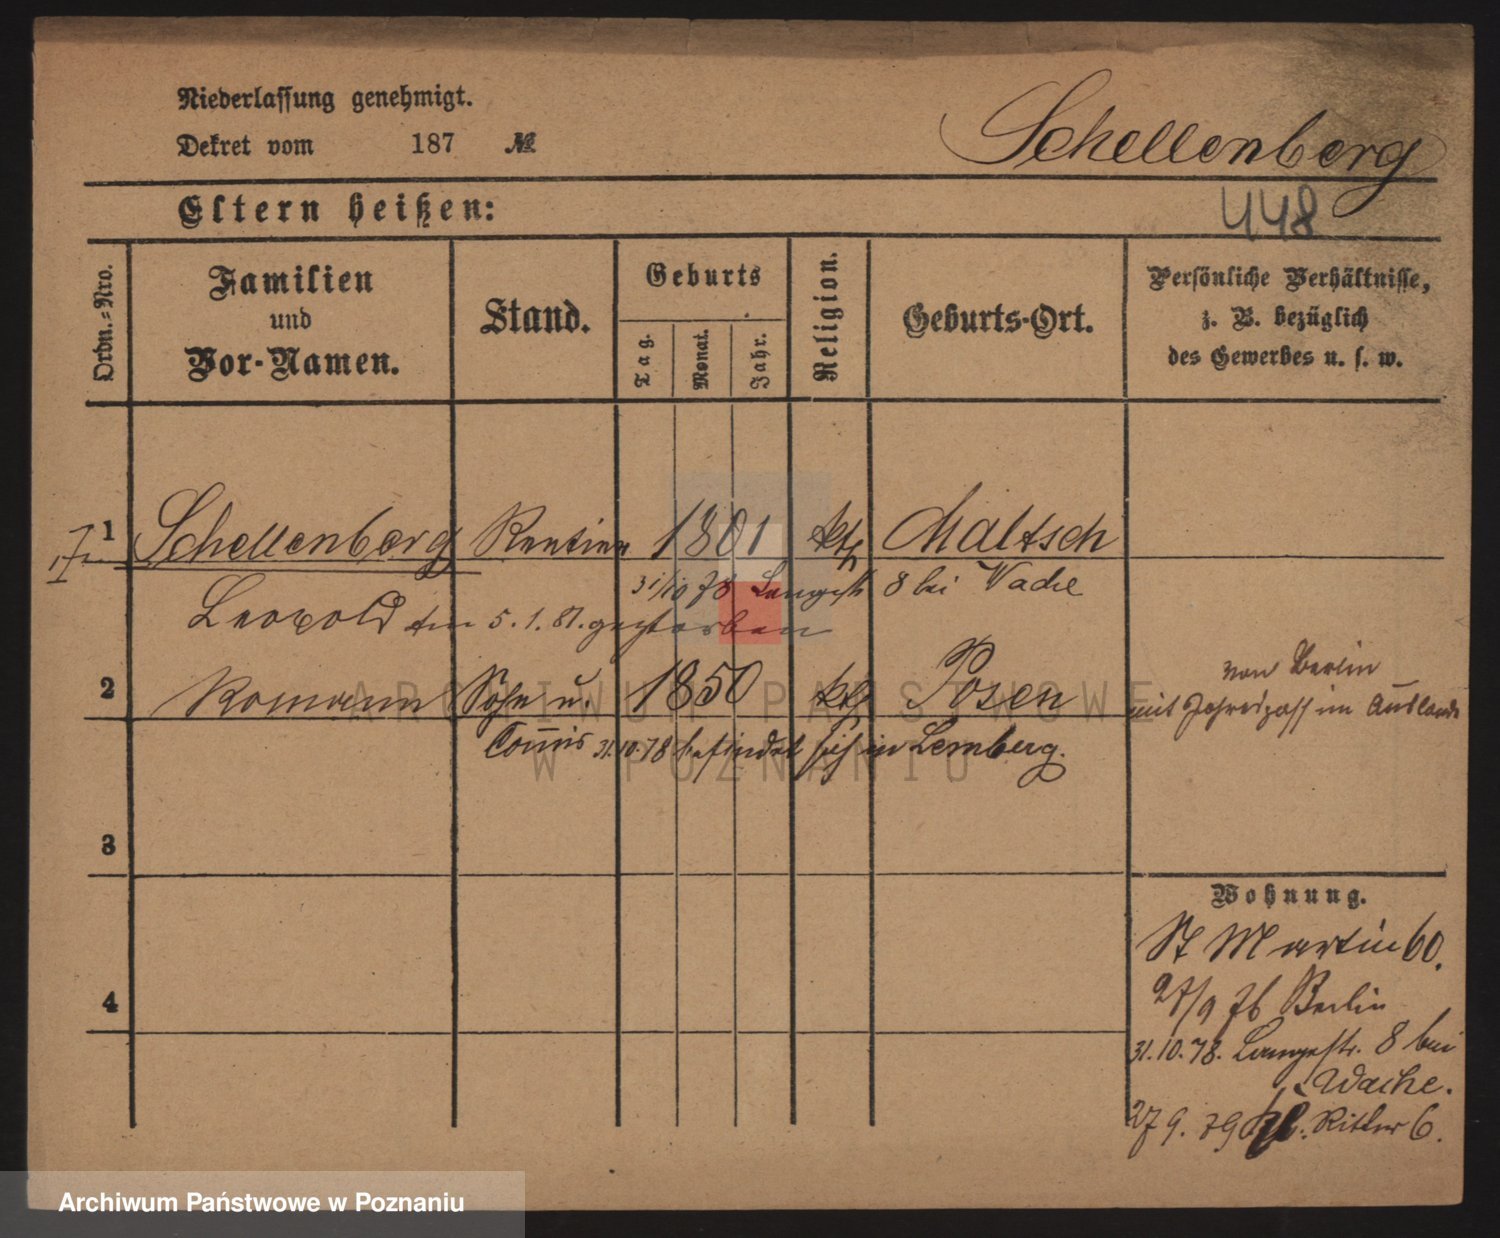 Niederlassung genehmigt.
Dekret vom 187 №
Schellenberg
448
Eltern heißen:
Ordn.-Nro.
Familien
und
Vor-Namen.
Stand.
Geburts
Tag.
Monat.
Jahr.
Religion.
Geburts-Ort.
Persönliche Verhältnisse,
z. B. bezüglich
des Gewerbes u. s. w.
1 Schellenberg Rentier 1801 kth Maltsch
31/10 78 Langestr 8 bei Wache
Leopold am 5.1.81. gestorben
2 Romann Sohn u. 1850 kth Posen
von Berlin
mit Jahrespass im Auslande
Commis 31.10.78 befindet sich in Lemberg.
3
4
Wohnung.
St Martin 60.
27/9 76 Berlin
31.10.78. Langestr. 8 bei
Wache.
27 9. 79 Ritter 6.
ARCHIWUM PAŃSTWOWE
W POZNANIU
Archiwum Państwowe w Poznaniu